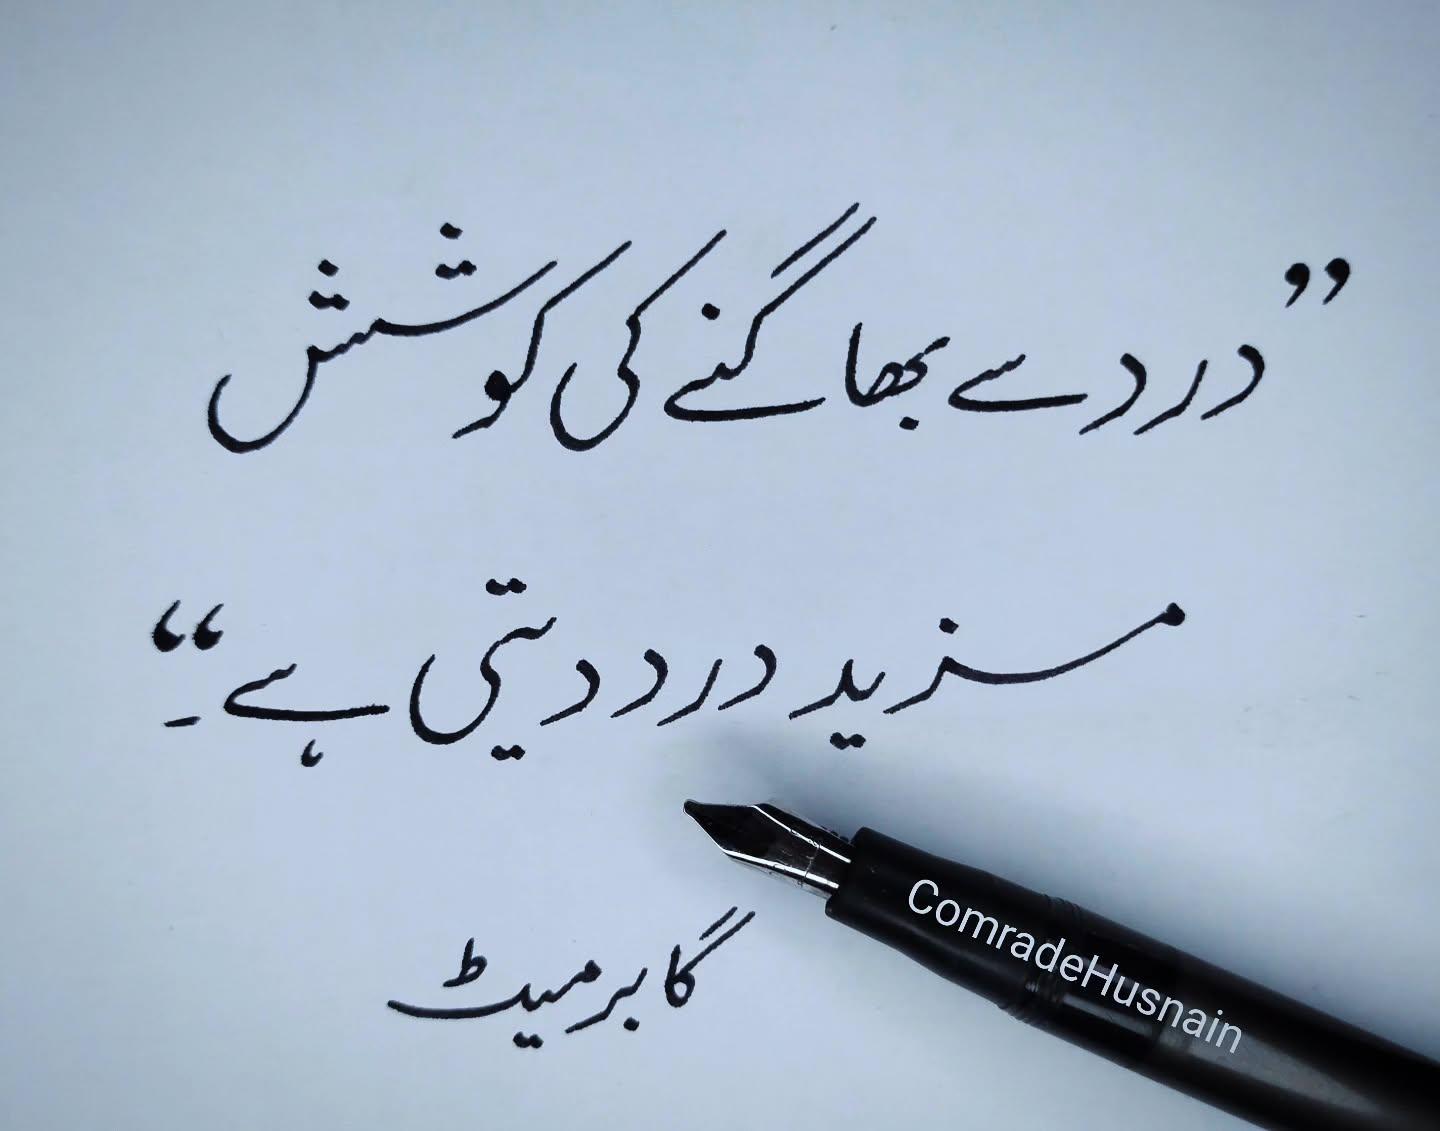 ”درد سے بھاگنے کی کوشش
مزید درد دیتی ہے۔“
گابر میٹ
ComradeHusnain